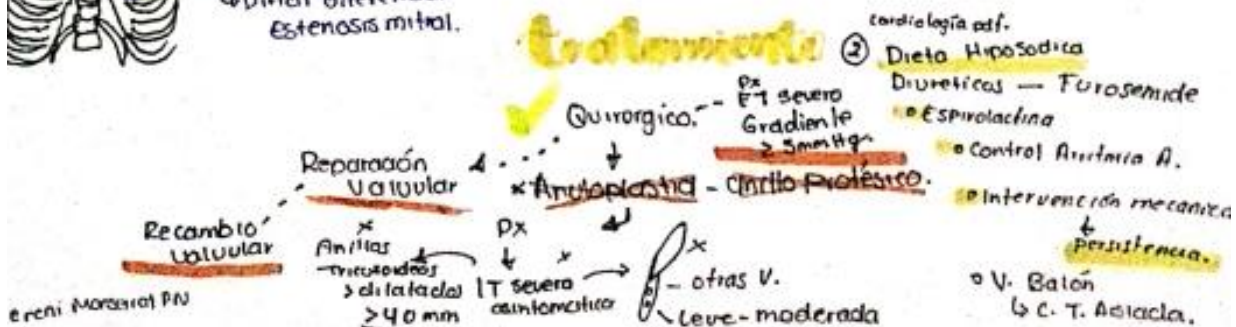 Estenosis mitral.
tratamiento
cardiología pdf.
② Dieta Hiposodica
Diureticos — Furosemide
Espirolactina
Control Arritmia A.
Intervención mecanica
persistencia.
V. Balón
C. T. Aislada.
Quirorgico.
Px
ET severo
Gradiente
≥ 5mmHg.
Reparación
Valvular
Anuloplastia - Anillo Protésico.
Recambio
Valvular
Anillos
tricutoideos
> dilatados
≥ 40 mm
Px
IT severo
asintomatico
otras V.
Leve-moderada